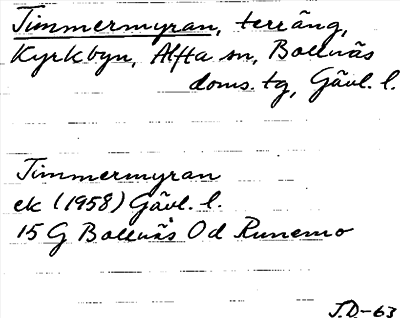 Timmermyran, terräng,
Kyrkbyn, Alfta sn, Bollnäs
doms. tg, Gävl. l.
Timmermyran
ek (1958) Gävl. l.
15 G Bollnäs Od Runemo
J.D-63